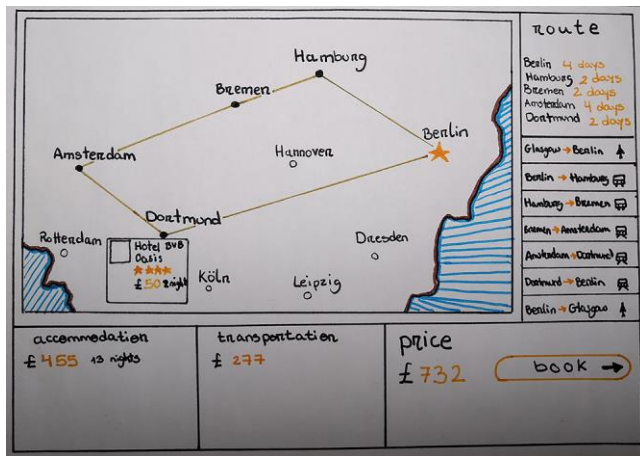 Hamburg
Bremen
Berlin
Amsterdam
Hannover
Dortmund
Rotterdam
Hotel BVB
Oasis
£ 50 2night
Köln
Dresden
Leipzig
route
Berlin 4 days
Hamburg 2 days
Bremen 2 days
Amsterdam 4 days
Dortmund 2 days
Glasgow → Berlin
Berlin → Hamburg
Hamburg → Bremen
Bremen → Amsterdam
Amsterdam → Dortmund
Dortmund → Berlin
Berlin → Glasgow
accommodation
£ 455 13 nights
transportation
£ 277
price
£ 732
book →